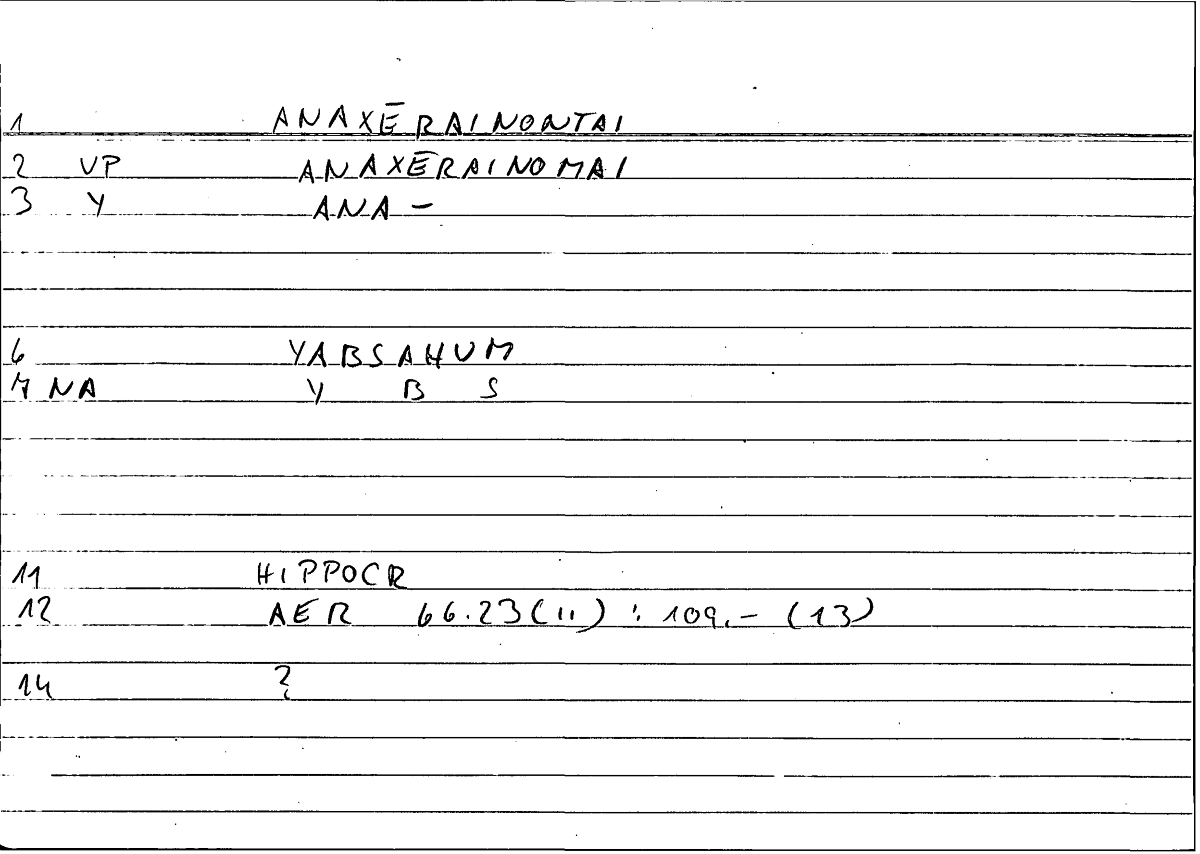 1 ANAXĒRAINONTAI
2 VP ANAXĒRAINOMAI
3 Y ANA-
6 YABSAHUM
7 NA Y B S
11 HIPPOCR
12 AER 66.23(11) : 109.- (13)
14 ?